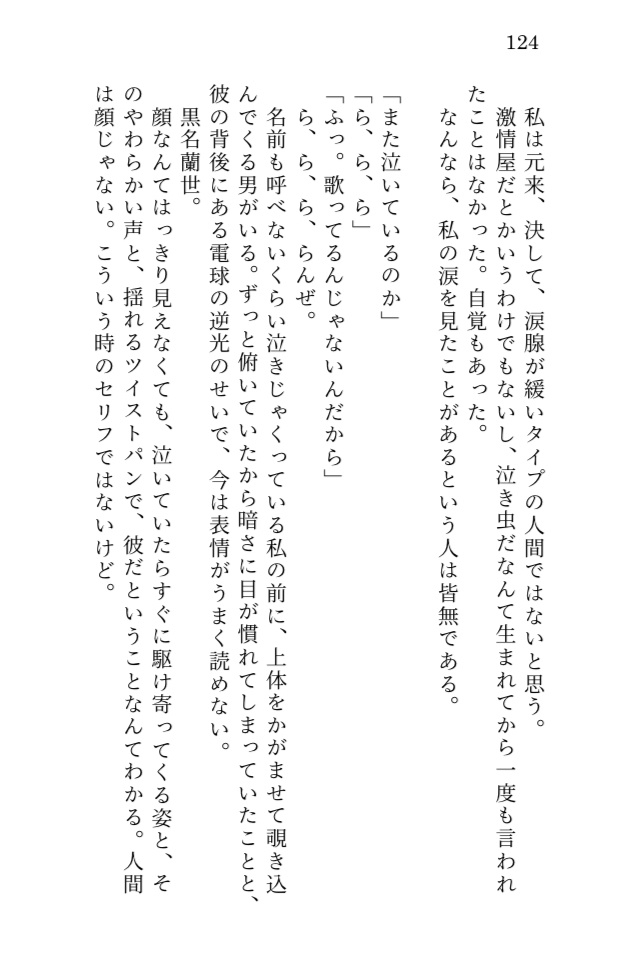 124
私は元来、決して、涙腺が緩いタイプの人間ではないと思う。
激情屋だとかいうわけでもないし、泣き虫だなんて生まれてから一度も言われ
たことはなかった。自覚もあった。
なんなら、私の涙を見たことがあるという人は皆無である。
「また泣いているのか」
「ら、ら、ら」
「ふっ。歌ってるんじゃないんだから」
ら、ら、ら、らんぜ。
名前も呼べないくらい泣きじゃくっている私の前に、上体をかがませて覗き込
んでくる男がいる。ずっと俯いていたから暗さに目が慣れてしまっていたことと、
彼の背後にある電球の逆光のせいで、今は表情がうまく読めない。
黒名蘭世。
顔なんてはっきり見えなくても、泣いていたらすぐに駆け寄ってくる姿と、そ
のやわらかい声と、揺れるツイストパンで、彼だということなんてわかる。人間
は顔じゃない。こういう時のセリフではないけど。